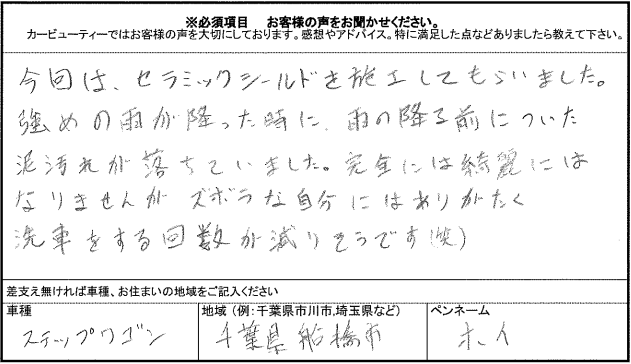 ※必須項目　お客様の声をお聞かせください。
カービューティーではお客様の声を大切にしております。感想やアドバイス。特に満足した点などありましたら教えて下さい。
今回は、セラミックシールドを施工してもらいました。
強めの雨が降った時に、雨の降る前についた
泥汚れが落ちていました。完全には綺麗には
なりませんがズボラな自分にはありがたく
洗車をする回数が減りそうです(笑)
差支え無ければ車種、お住まいの地域をご記入ください
車種　地域（例：千葉県市川市,埼玉県など）　ペンネーム
ステップワゴン　千葉県船橋市　ホイ